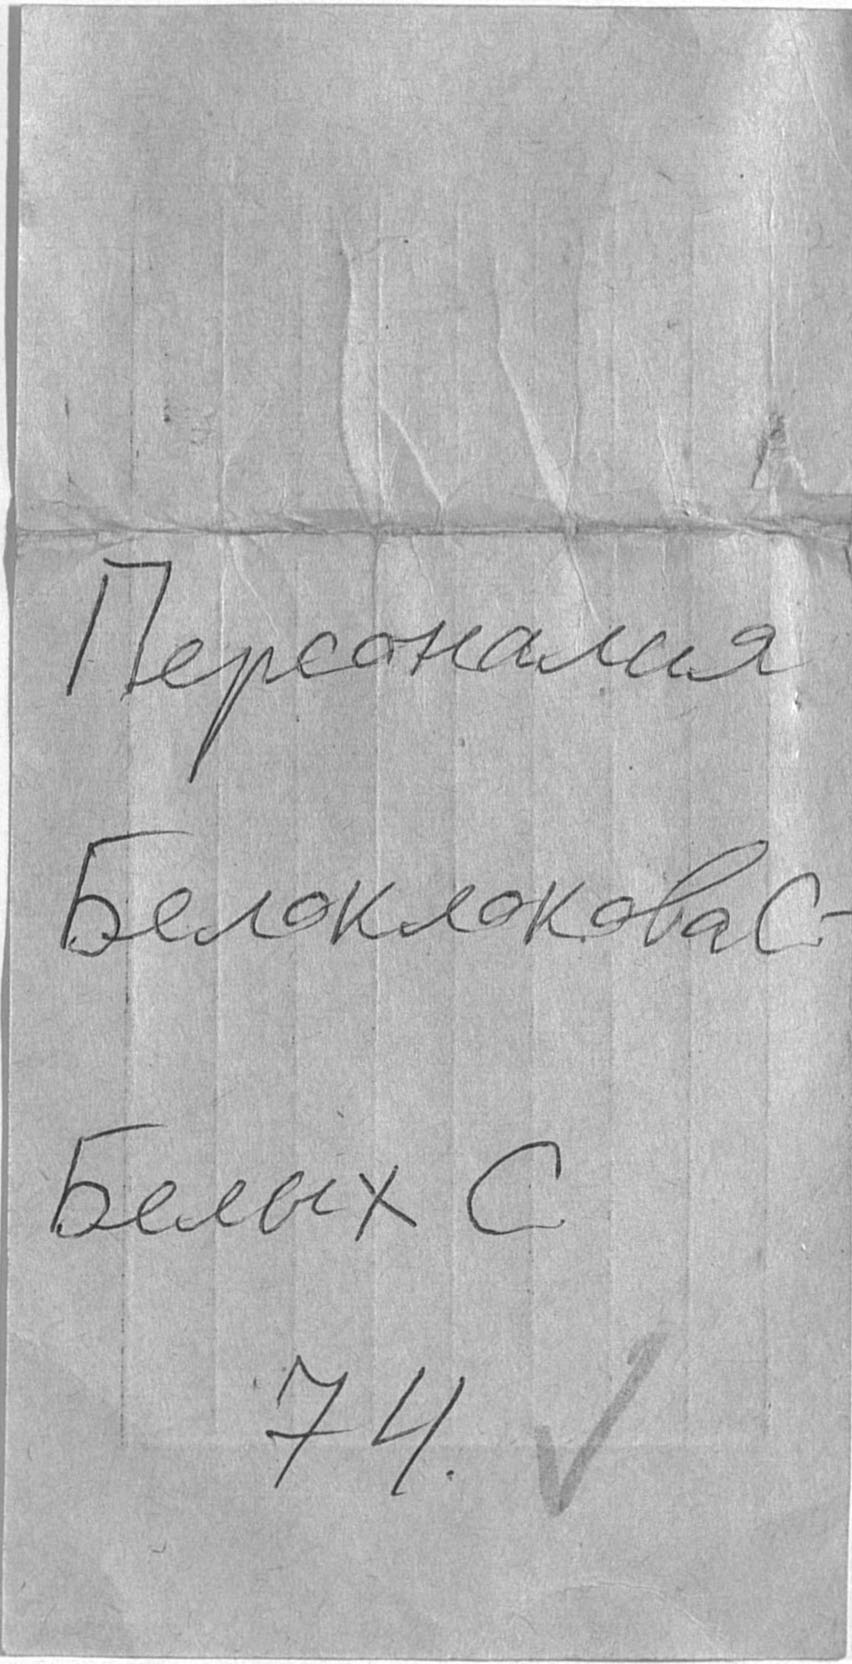 Персоналия
Белоклокова С-
Белых С
74. ✓